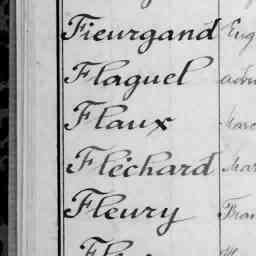 Fieurgand Eug
Flaguel
Flaux
Fléchard Mar
Fleury Fran